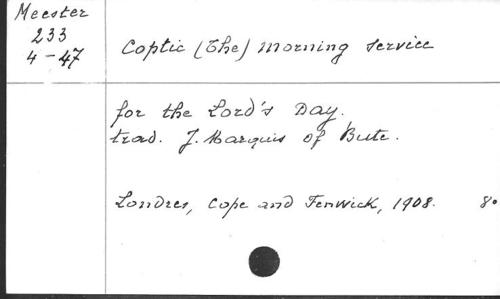 Meester
233
4-47
Coptic (The) Morning service
for the Lord's Day.
trad. J. Marquis of Bute.
Londres, Cope and Fenwick, 1908. 8°